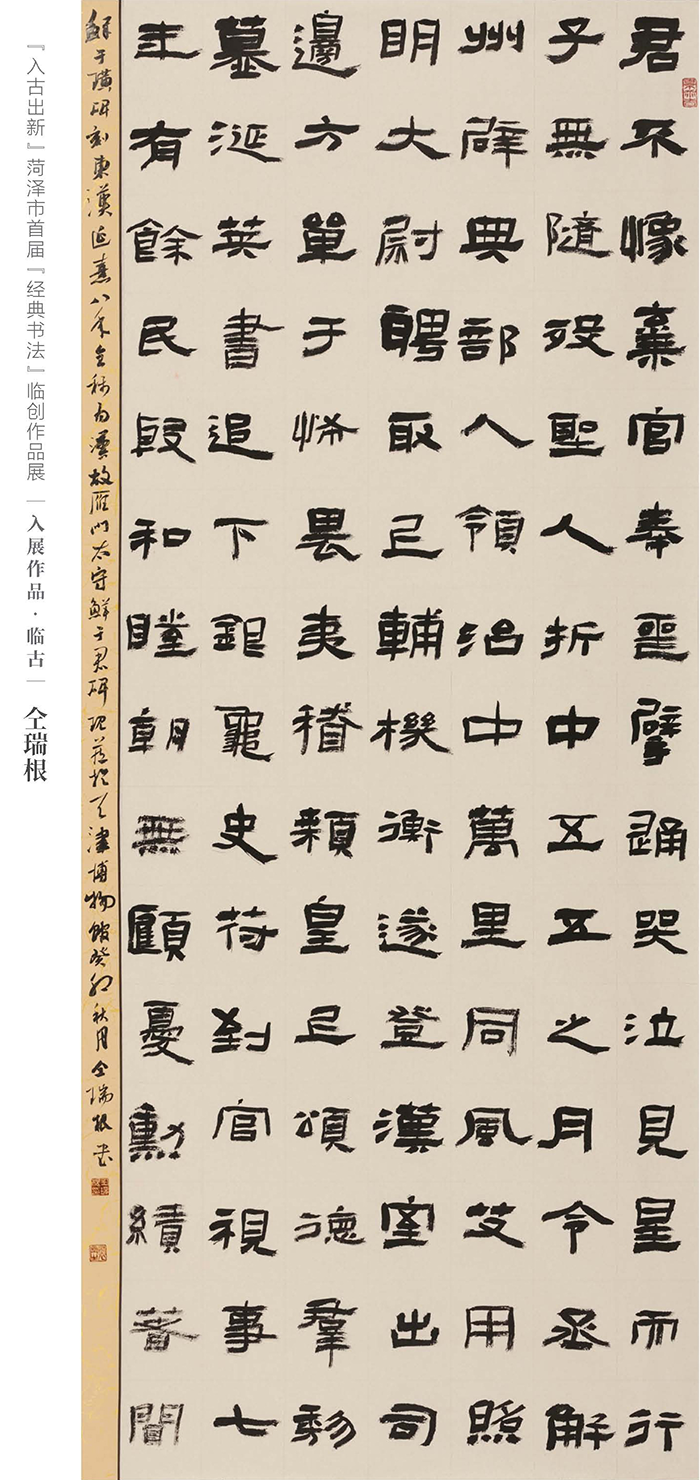 君不棄官奉喪擘踊哭泣見星而行
子無隨歿聖人折中五五之月令丞解
州辟典部入領治中萬里同風艾用照
明大尉聘取㠯輔機衡遂登漢室出司
邊方單于怖畏夷稽顙皇㠯頌德羣黎
慕涎英書追下銀龜史荷到官視事七
年有餘民殷和睦朝無顧憂勳績著聞
鮮于璜碑刻東漢延熹八年全稱為漢故雁門太守鮮于君碑現藏於天津博物館癸卯秋月仝瑞根書
『入古出新』菏泽市首届『经典书法』临创作品展｜入展作品·临古｜仝瑞根